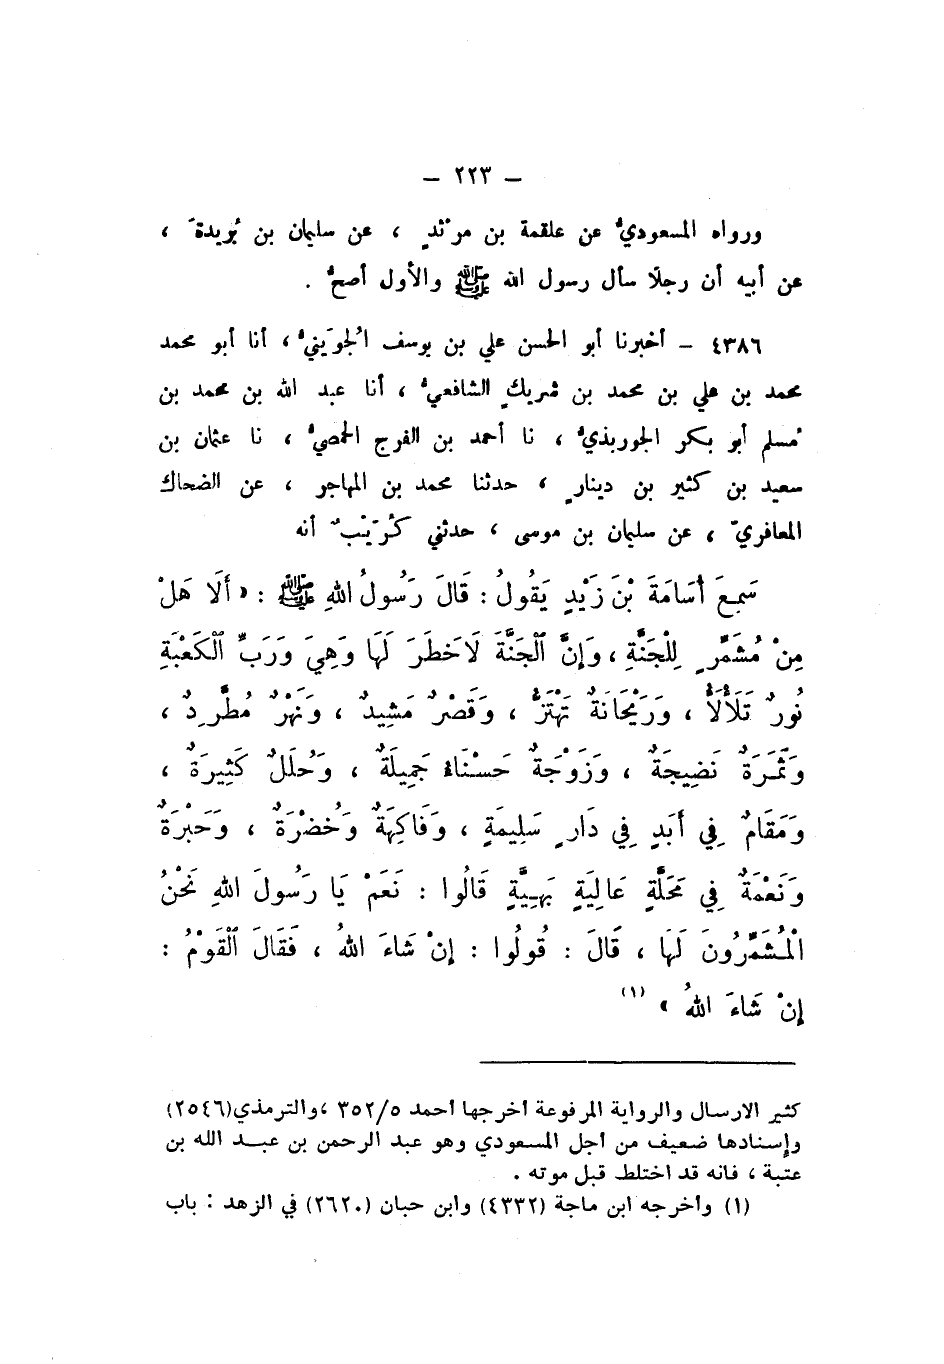 – ٢٢٣ –
ورواه المسعوديُّ عن علقمة بن مرْثدٍ ، عن سليمان بن بُريدةَ ،
عن أبيه أن رجلًا سأل رسول الله ﷺ والأول أصحُّ .
٤٣٨٦ – أخبرنا أبو الحسن علي بن يوسف الجُوَيني ، أنا أبو محمد
محمد بن علي بن محمد بن شريكٍ الشافعيُّ ، أنا عبد الله بن محمد بن
مُسلم أبو بكر الجوربذيُّ ، نا أحمد بن الفرج الحمصيُّ ، نا عثمان بن
سعيد بن كثير بن دينارٍ ، حدثنا محمد بن المهاجر ، عن الضحاك
المعافريّ ، عن سليمان بن موسى ، حدثني كُرَيْبٌ أنه
سَمِعَ أُسَامَةَ بْنَ زَيْدٍ يَقُولُ : قَالَ رَسُولُ اللهِ ﷺ : « أَلَا هَلْ
مِنْ مُشَمِّرٍ لِلْجَنَّةِ ، وَإِنَّ الْجَنَّةَ لَاخَطَرَ لَهَا وَهِيَ وَرَبِّ الْكَعْبَةِ
نُورٌ تَلَأْلَأُ ، وَرَيْحَانَةٌ تَهْتَزُّ ، وَقَصْرٌ مَشِيدٌ ، وَنَهْرٌ مُطَّرِدٌ ،
وَثَمَرَةٌ نَضِيجَةٌ ، وَزَوْجَةٌ حَسْنَاءُ جَمِيلَةٌ ، وَحُلَلٌ كَثِيرَةٌ ،
وَمَقَامٌ فِي أَبَدٍ فِي دَارٍ سَلِيمَةٍ ، وَفَاكِهَةٌ وَخُضْرَةٌ ، وَحَبْرَةٌ
وَنَعْمَةٌ فِي مَحَلَّةٍ عَالِيَةٍ بَهِيَّةٍ قَالُوا : نَعَمْ يَا رَسُولَ اللهِ نَحْنُ
الْمُشَمِّرُونَ لَهَا ، قَالَ : قُولُوا : إِنْ شَاءَ اللهُ ، فَقَالَ الْقَوْمُ :
إِنْ شَاءَ اللهُ » (١)
كثير الارسال والرواية المرفوعة أخرجها أحمد ٣٥٢/٥ ،والترمذي(٢٥٤٦)
وإسنادها ضعيف من أجل المسعودي وهو عبد الرحمن بن عبد الله بن
عتبة ، فانه قد اختلط قبل موته .
(١) وأخرجه ابن ماجة (٤٣٣٢) وابن حبان (٢٦٢٠) في الزهد : باب